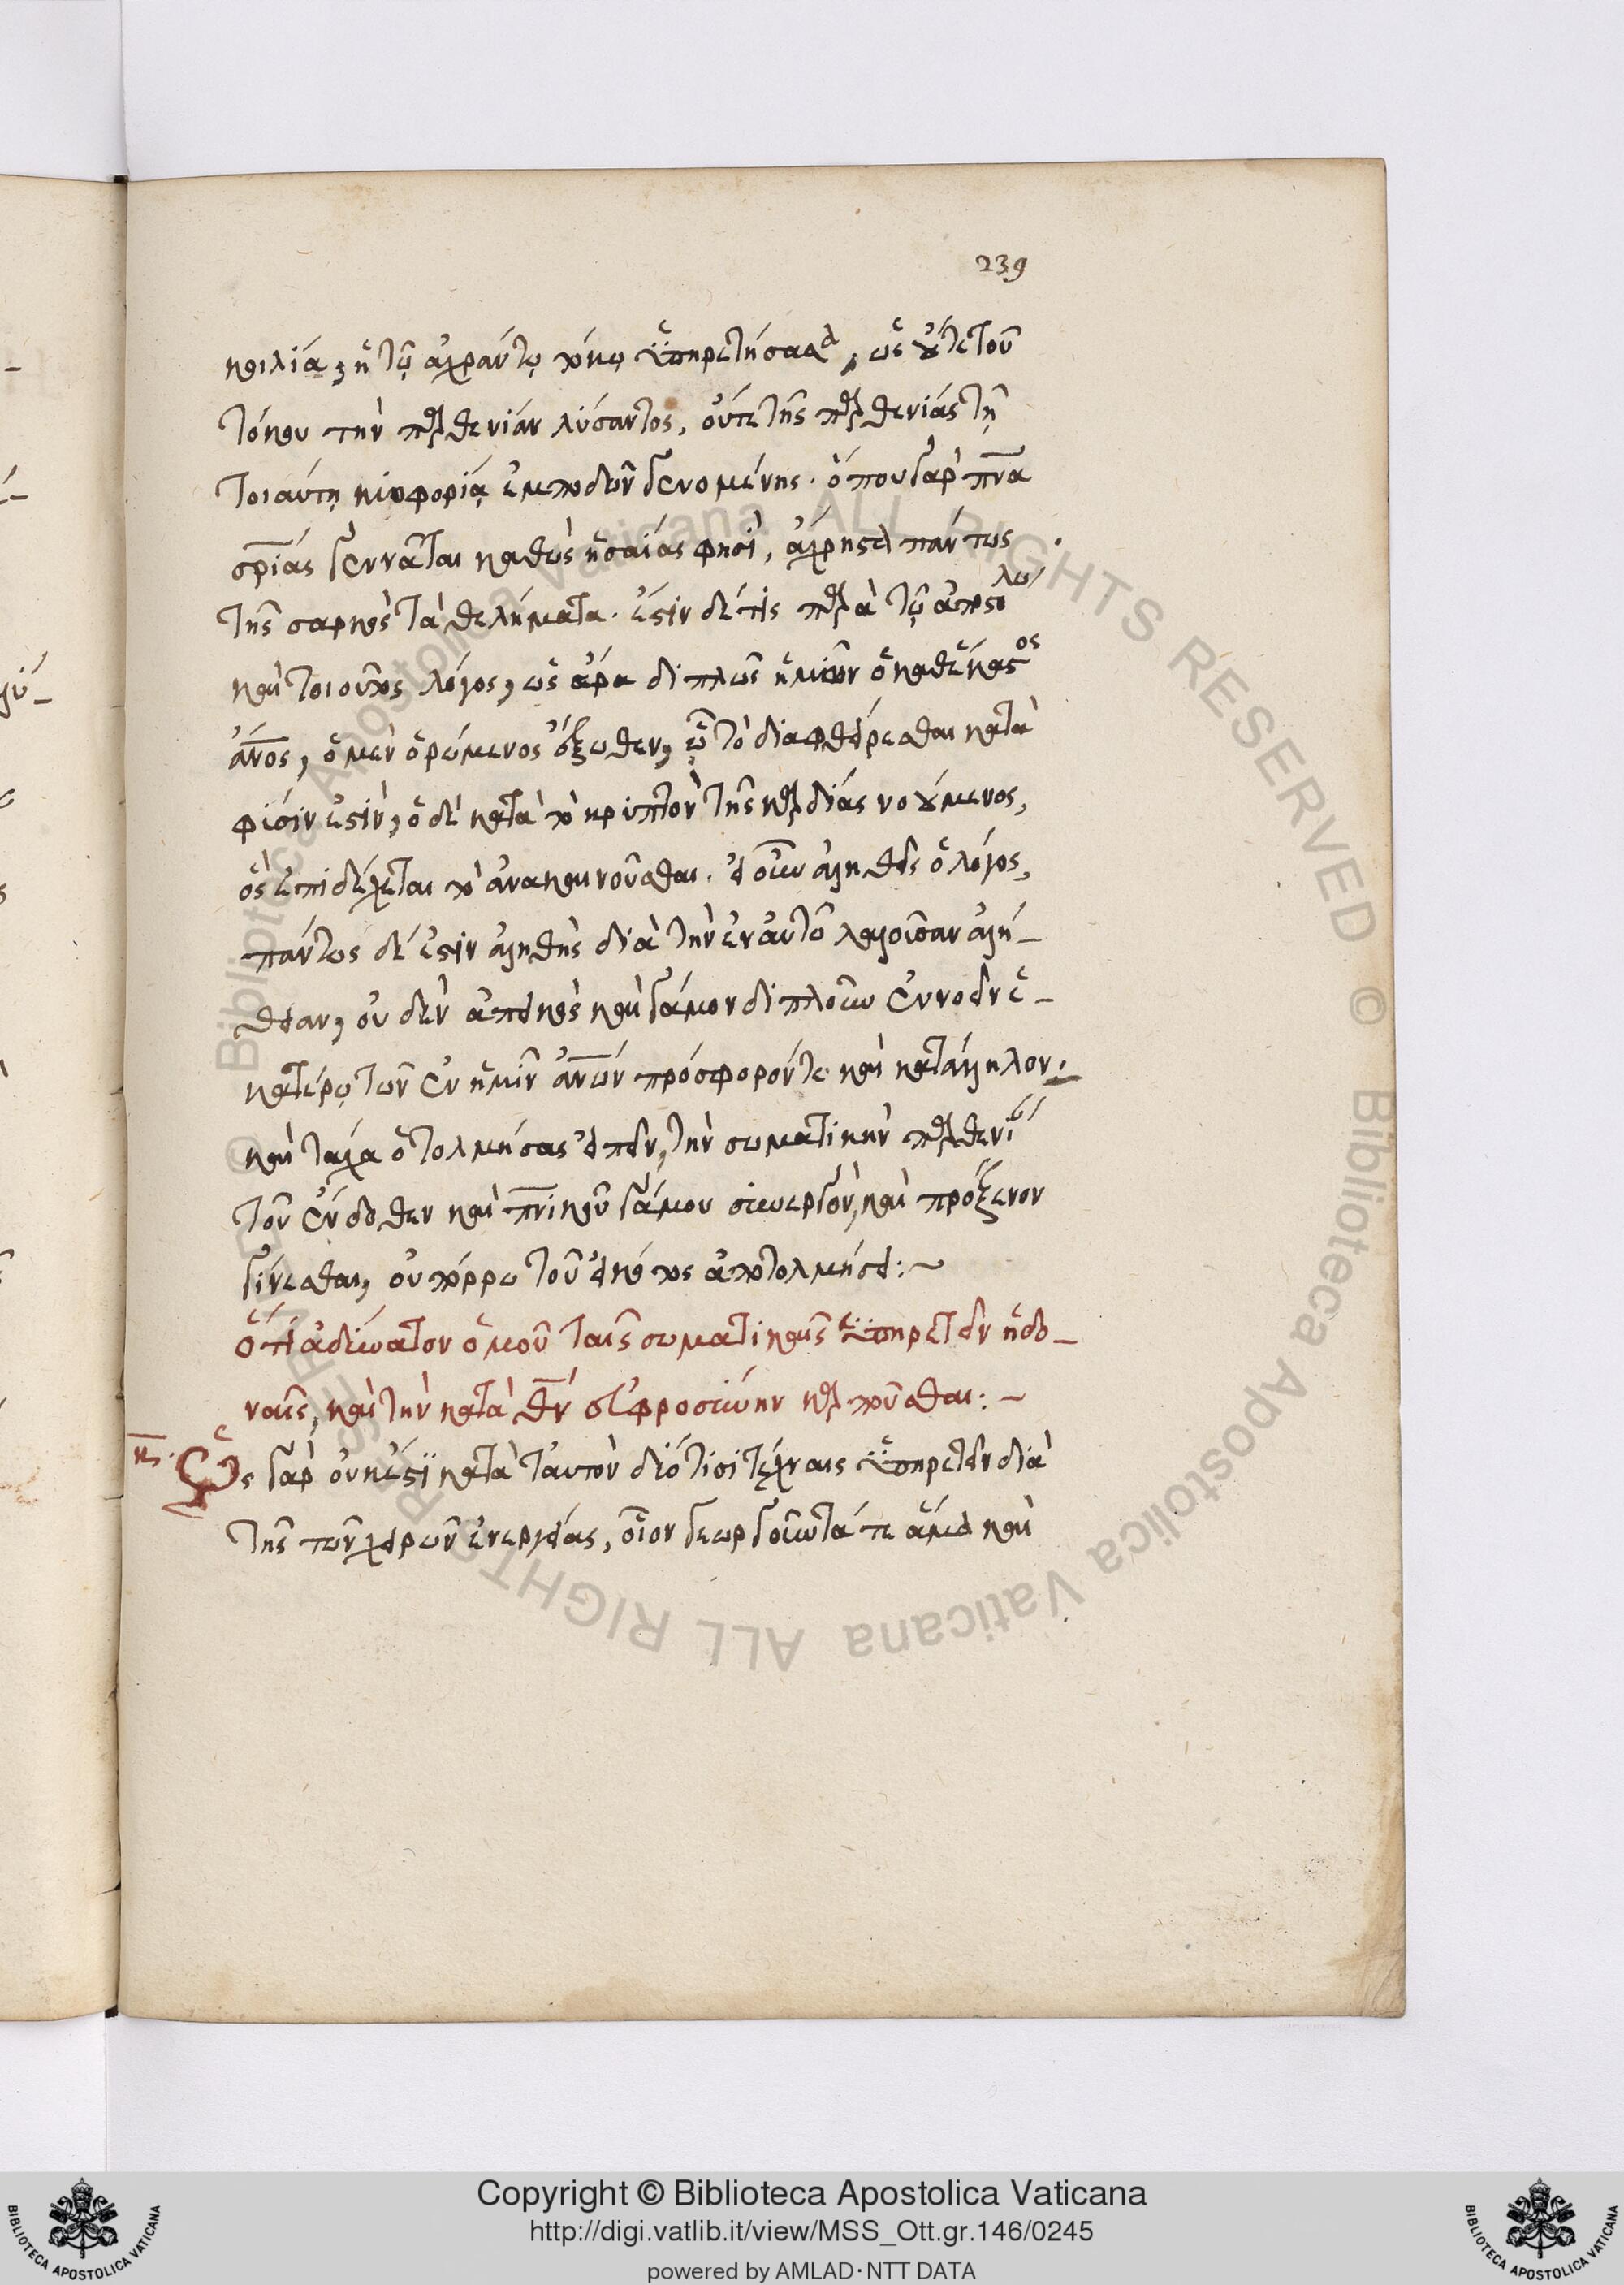 239
κοιλία, ἡ τῷ ἀχράντῳ τόκῳ ὑπηρετήσασα, ὡς οὔτε τοῦ
τόκου τὴν παρθενίαν λύσαντος, οὔτε τῆς παρθενίας τῇ
τοιαύτῃ κυοφορίᾳ ἐμποδὼν γενομένης. ὅπου γὰρ πνα
σρίας γεννᾶται καθὼς ἡσαΐας φησὶ, ἄχρηστα πάντως
τῆς σαρκὸς τὰ θελήματα. ἔστιν δέ τις παρὰ τῷ ἀποστόλω
καὶ τοιοῦτος λόγος, ὡς ἄρα διπλῶς ἡμῶν ὁ καθέκαστος
ἄνος, ὁ μὲν ὁρώμενος ἔξωθεν, ᾧ τὸ διαφθείρεσθαι κατὰ
φύσιν ἐστὶν, ὁ δὲ κατὰ τὸ κρυπτὸν τῆς καρδίας νοούμενος,
ὃς ἐπιδέχεται τὸ ἀνακαινοῦσθαι. εἰ οὖν ἀληθὴς ὁ λόγος,
πάντως δέ ἐστιν ἀληθὴς διὰ τὴν ἐν αὐτῶ λαλοῦσαν ἀλή-
θειαν, οὐδὲν ἀπεικὸς καὶ γάμον διπλοῦν ἐννοεῖν ἑ-
κατέρῳ τῶν ἐν ἡμῖν ἀνων πρόσφορόν τε καὶ κατάλληλον.
καὶ τάχα ὁ τολμήσας εἰπεῖν, τὴν σωματικὴν παρθενίαν
τοῦ ἔνδοθεν καὶ πνικοῦ γάμου συνεργὸν, καὶ πρόξενον
γίνεσθαι, οὐ πόρρω τοῦ εἰκότος ἀποτολμήσει:~
Ὅτι ἀδύνατον ὁμοῦ ταῖς σωματικαῖς ὑπηρετεῖν ἡδο-
ναῖς, καὶ τὴν κατὰ θν εὐφροσύνην καρποῦσθαι:~
κ. Ὡς γὰρ οὐκ ἔστι κατὰ ταυτὸν δυσί τισι τέχναις ὑπηρετεῖν διὰ
τῆς τῶν χειρῶν ἐνεργείας, οἷον γεωργοῦντά τε ἅμα καὶ
Copyright © Biblioteca Apostolica Vaticana
http://digi.vatlib.it/view/MSS_Ott.gr.146/0245
powered by AMLAD·NTT DATA